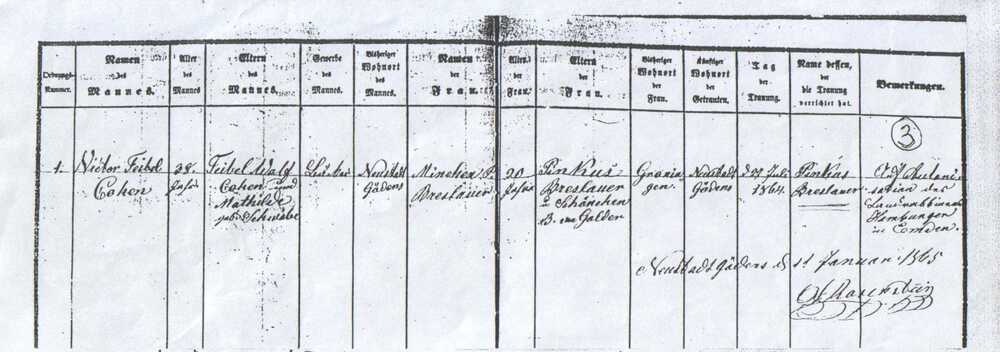 Ordnungs-
Nummer.
Namen
des
Mannes.
Alter
des
Mannes
Eltern
des
Mannes.
Gewerbe
des
Mannes.
Bisheriger
Wohnort
des
Mannes.
Namen
der
Frau.
Alter
der
Frau
Eltern
der
Frau.
Bisheriger
Wohnort
der
Frau.
Künftiger
Wohnort
der
Getrauten.
Tag
der
Trauung.
Name dessen,
der
die Trauung
verrichtet hat.
Bemerkungen.
3
1.
Victor Feibel
Cohen
38.
Jahre
Feibel Wolf
Cohen und
Mathilde
geb. Schwabe
Neustadt
Gödens
Minchen P.
Breslauer
20
Jahre
Pinkus
Breslauer
u Schönchen
B. Gelder
Gronin
gen.
Neustadt
Gödens
Juli
1864.
Pinkus
Breslauer
sation des
Landrabbiners
Hamburger
in Emden.
Neustadt Gödens d 11 Januar 1865